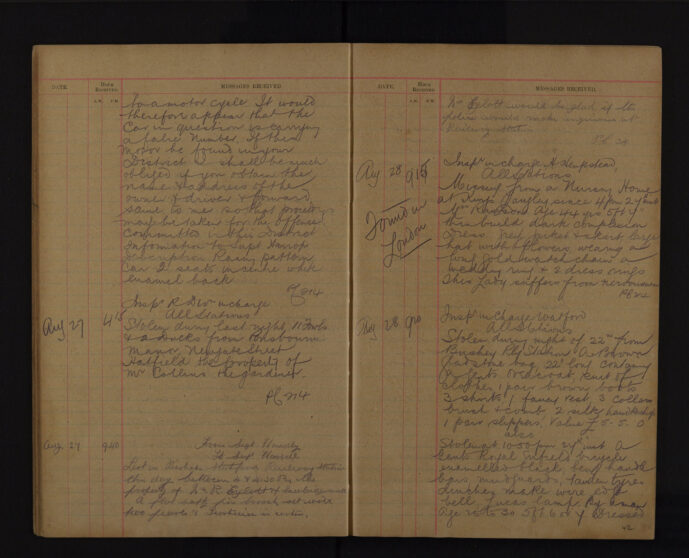 DATE.
HOUR RECEIVED.
A.M. P.M.
MESSAGES RECEIVED.
for a motor cycle. It would
therefore appear that the
Car in question is carrying
a false Number. If this
Motor be found in your
District I shall be much
obliged if you obtain the
name & address of the
owner & driver & forward
same to me so that proceedings
may be taken for the offence
Committed in this District
Information to Supt
description Racing pattern
Car 2 seats in white
enamel back
PC 214
Aug 27
4 15
Insp. R Dew in charge
All Stations
Stolen during last night 11 Fowls
& 2 Ducks from Ponsbourne
Manor, Newgate Street
Hatfield the property of
Mr Collins the gardener.
PC 214
Aug. 27
9.40
From Supt
To Supt
Lost in Railway Station
this day between & 4.30 PM the
property of R
A gold
pearls &
DATE.
HOUR RECEIVED.
A.M. P.M.
MESSAGES RECEIVED.
would be glad if the
police would make inquiries at
Railway
Aug 28
9 15
Insp. in charge H. Hempstead
All Stations
Missing from a Nursing Home
at Kings Langley since 4 pm 27th inst
Mrs Age 44 yrs 5ft 4
thin build dark complexion
Dress Red jacket & skirt large
hat with flowers, wearing a
long gold watch chain a
wedding ring & 2 dress rings
This Lady suffers from nervousness
PC 214
Found in
London
Aug 28
9 20
Insp. in Charge Watford
All Stations
Stolen during night of 22nd from
Bushey Rly Station A Brown
bag 22" long Containing
a Gents Overcoat, suit of
clothes 1 pair brown boots
3 shirts, 1 fancy vest, 3 collars
brush & comb 2 silk handkchfs
1 pair slippers. Value £5.5.0
also
Stolen at 10.50pm 27th inst A
Gents Royal Enfield bicycle
enamelled black, handle
bars, mudguards, tyres
make
bell Lucas lamp By a man
Age 25 to 30 5ft 6 or 7 Dressed